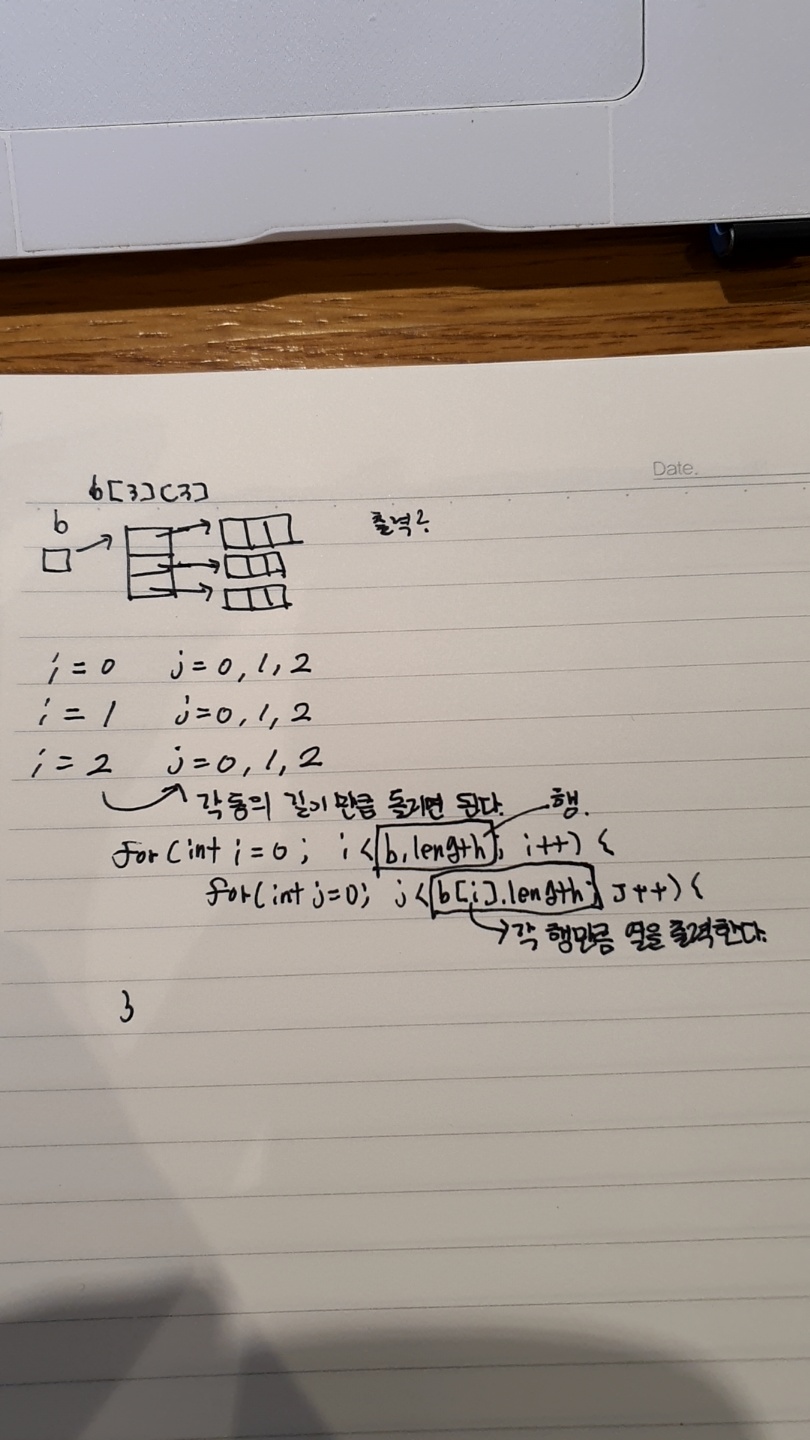 Date.
b[3][3]
b
출력?
i = 0 j = 0, 1, 2
i = 1 j = 0, 1, 2
i = 2 j = 0, 1, 2
각 동의 길이 만큼 돌리면 된다. 행.
for (int i = 0; i < b.length; i++) {
for (int j = 0; j < b[i].length; j++) {
각 행만큼 열을 출력한다.
}